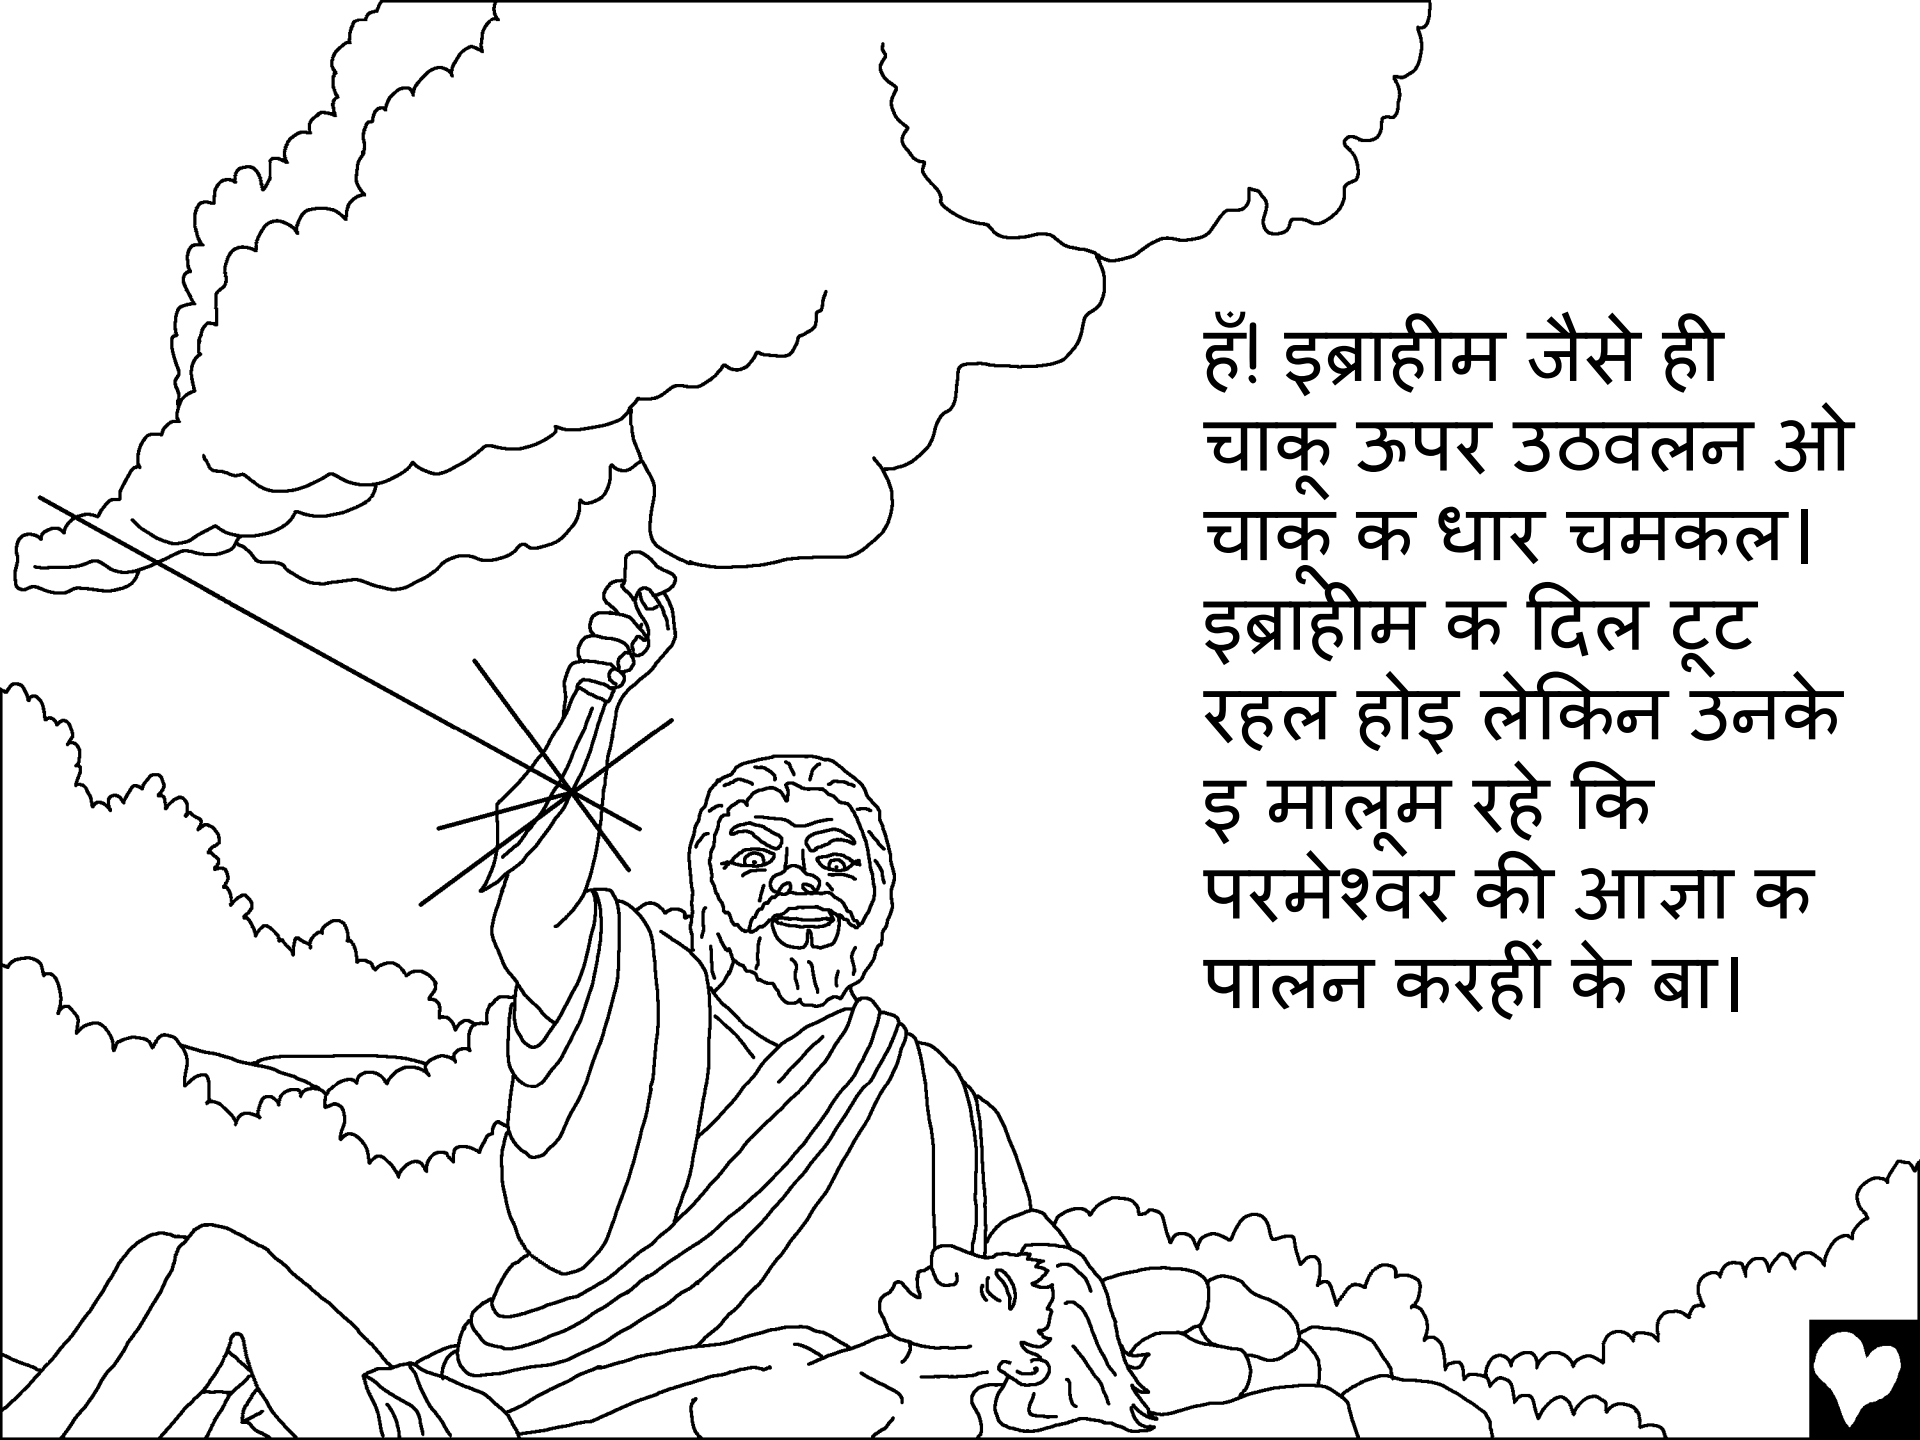 हँ! इब्राहीम जैसे ही
चाकू ऊपर उठवलन ओ
चाकू क धार चमकल।
इब्राहीम क दिल टूट
रहल होइ लेकिन उनके
इ मालूम रहे कि
परमेश्वर की आज्ञा क
पालन करहीं के बा।